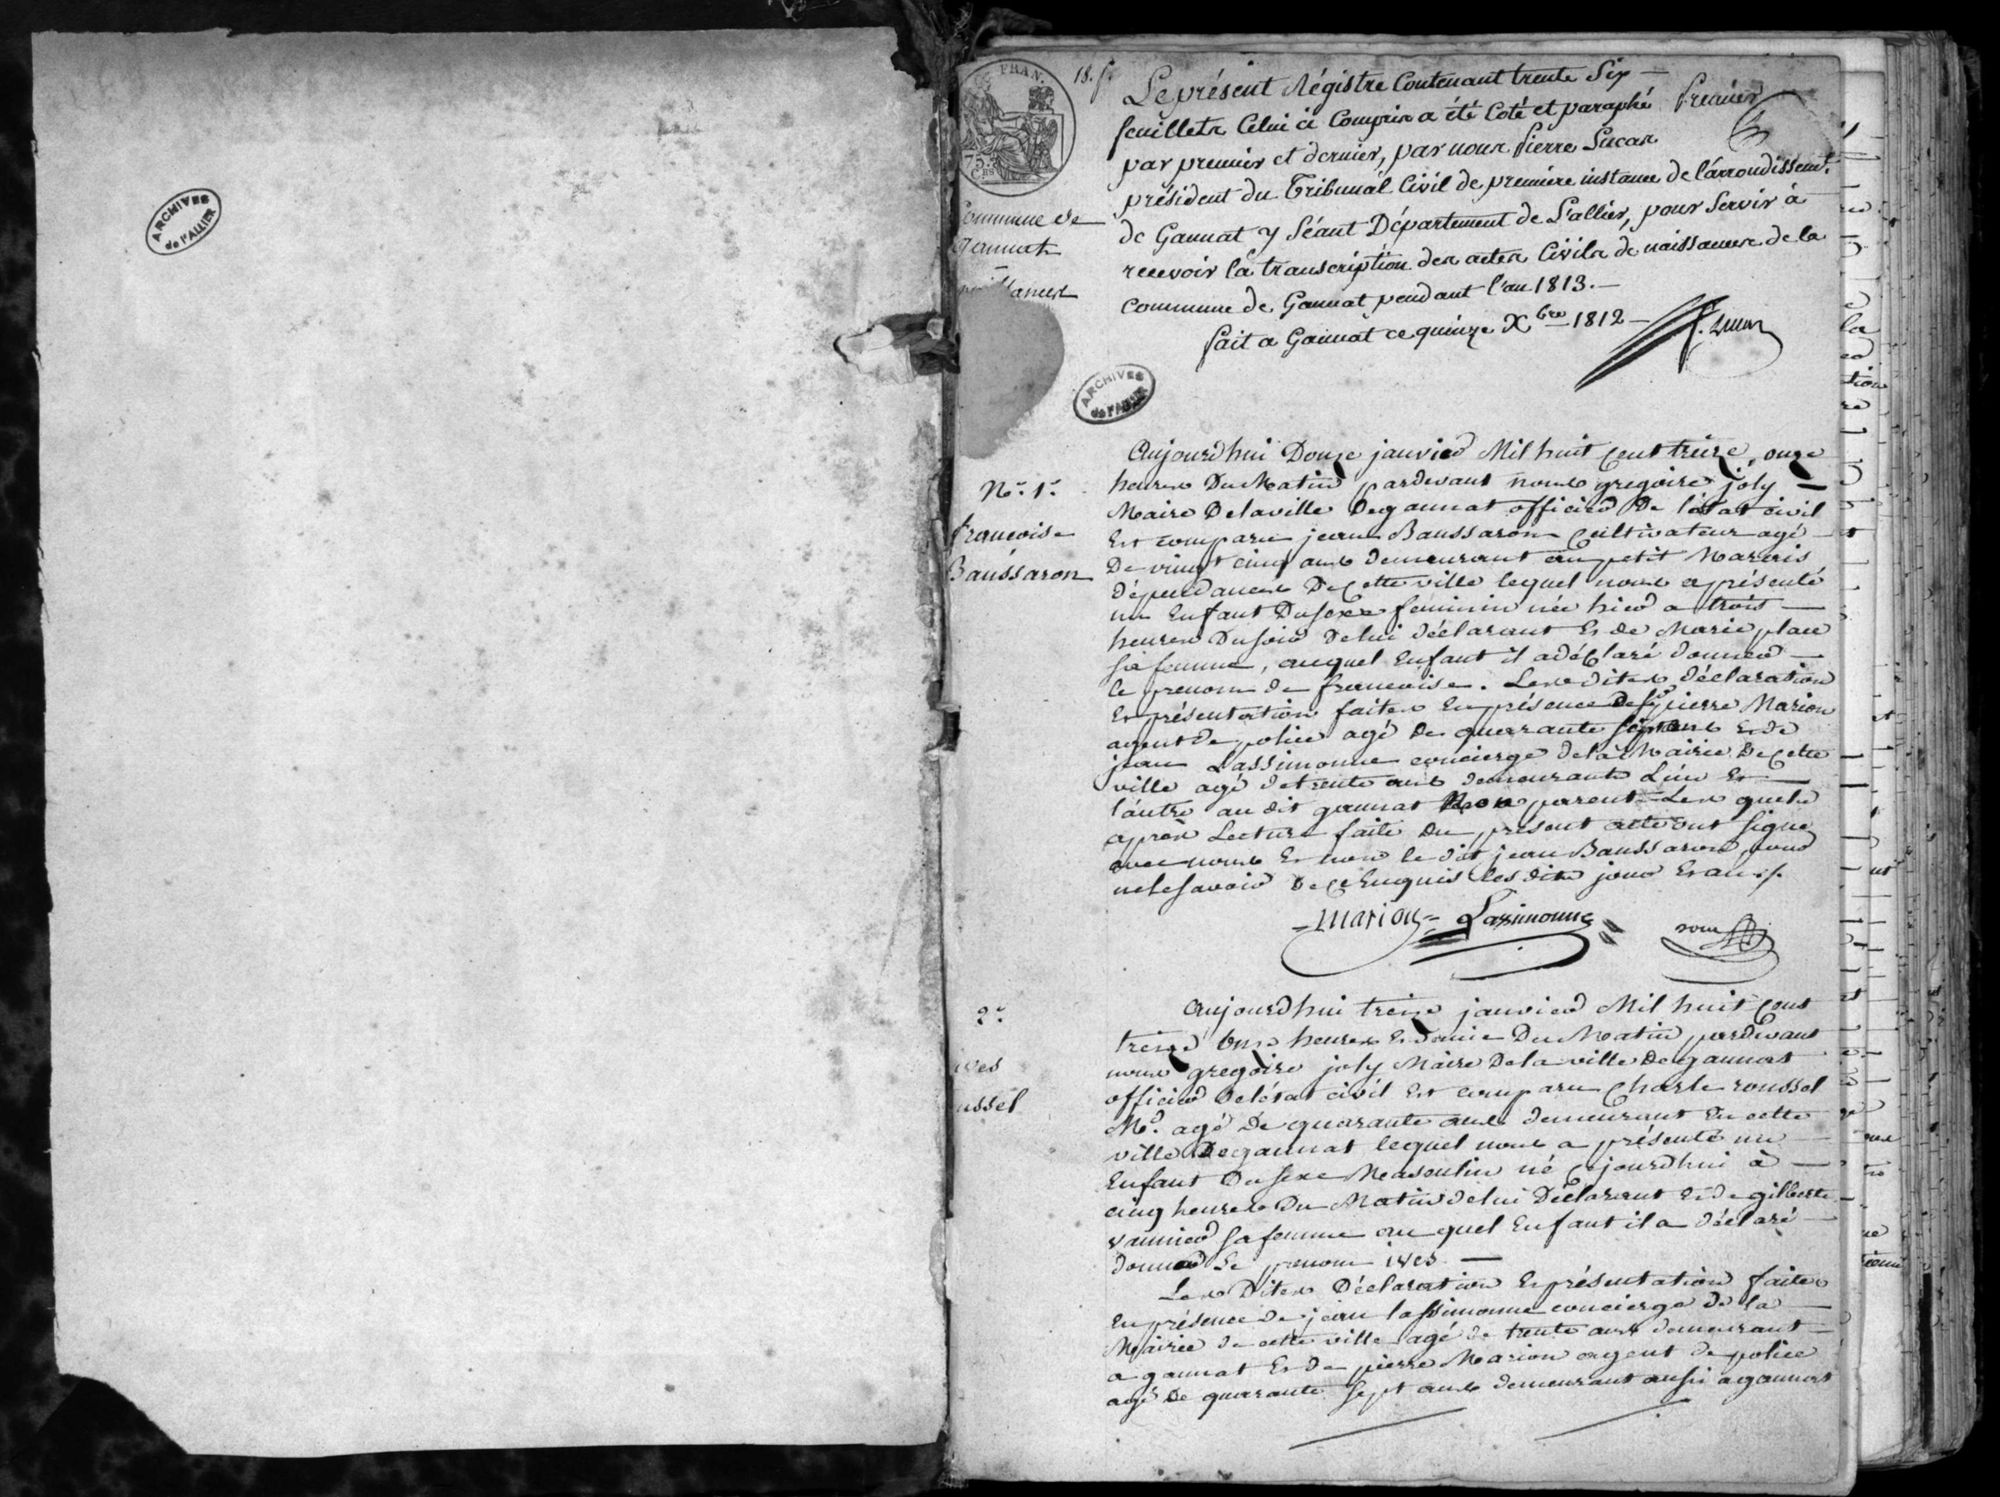 ARCHIVES
de l'ALLIER
FRAN.
75.
Crs
18. f.
Le présent Régistre Contenant trente Six —
feuillets Celui ci Compris a été Coté et paraphé
premier
par premier et dernier, par nous Pierre Lucas
président du Tribunal Civil de première instance de l'arrondissemt.
de Gannat y Séant Département de L'allier, pour Servir à
recevoir la transcription des actes Civils de naissances de la
commune de Gannat pendant l'an 1813. —
fait a Gannat ce quinze Xbre 1812 —
Commune de
Gannat
ARCHIVES
de l'ALLIER
N° 1er
françoise
Baussaron
Aujourd'hui Douze janvier Mil huit Cent treize, onze
heures Du Matin pardevant nous gregoire joly —
Maire Delaville Degannat officier De l'état civil
Est comparu jean Baussaron Cultivateur agé
De vingt cinq ans demeurant au petit Mazeris
dépendances De Cette ville lequel nous a présenté
un Enfant Dusexe feminin née hier a trois —
heures Du soir Delui déclarant Et de Marie place
sa femme, auquel Enfant il a déclaré donner —
le prenom de françoise. Lesdites déclaration
Et présentation faites En présence de pierre Marion
agent de police agé de quarante sept ans Et de
jean Lassimonne concierge dela Mairie De Cette
ville agé detrente ans demeurants L'un Et —
l'autre au dit gannat Non parent Les quels
après Lecture faite Du présent acte ont signé
avec nous Et non le dit jean Baussaron pour
ne le savoir De ce Enquis les dits jour Et an ./.
Marion Lassimonne
2e
ives
ussel
Aujourd'hui treize janvier Mil huit Cent
treize onze heures Et demie Du Matin pardevant
nous gregoire joly Maire Dela ville Degannat
officier Del'état civil Est comparu Charle roussel
Md. agé De quarante ans demeurant En cette
ville Degannat lequel nous a présenté un —
Enfant Dusexe Masculin né Cejourd'hui à —
cinq heures Du Matin delui Déclarant Et de gilberte
vannier sa femme au quel Enfant il a déclaré —
donner Le prenom ives —
Les Dites Déclaration Et présentation faites
En présence de jean lassimonne concierge de la —
Mairie de cette ville agé de trente ans demeurant —
a gannat Et de pierre Marion agent de police
agé De quarante sept ans demeurant aussi a gannat